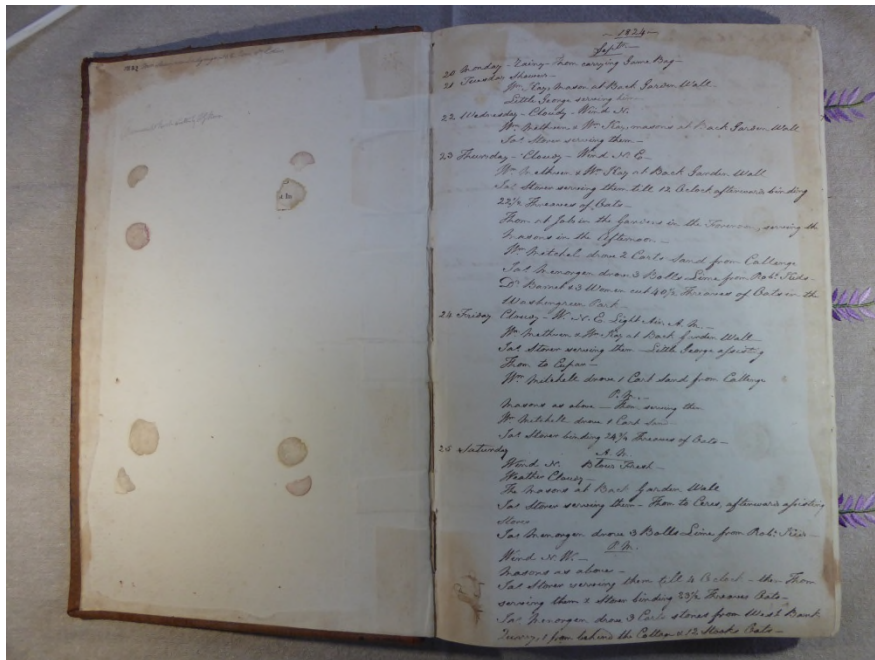 1824
Sept.
20 Monday - Thom carrying Game Bag
21 Tuesday Shower
Wm Kay, Mason at Back Garden Wall
Little George serving him
22 Wednesday - Cloudy - Wind N.
Wm Methven & Wm Kay, masons at Back Garden Wall
Jas Stover serving them
23 Thursday - Cloudy - Wind N. E.
Wm Methven & Wm Kay at Back Garden Wall
Jas Stover serving them till 12 Oclock afterwards binding
22½ Threaves of Oats
Thom at Jobs in the Gardens in the Forenoon, serving the
Masons in the Afternoon
Wm Mitchel drove 2 Carts Sand from Callange
Jas Menorgen drove 3 Bolls Lime from Robt
3 Women cut 40½ Threaves of Oats in the
Washingreen Park
24 Friday Cloudy - W. N. E. Light Air A. M.
Wm Methven & Wm Kay at Back Garden Wall
Jas Stover serving them - Little George assisting
Thom to Cupar
Wm Mitchell drove 1 Cart Sand from Callange
P. M.
Masons as above - Thom serving them
Wm Mitchell drove 1 Cart
Jas Stover binding 24½ Threaves of Oats
25 Saturday A. M.
Wind N. Blows Fresh
Weather Cloudy
The Masons at Back Garden Wall
Jas Stover serving them - Thom to Ceres, afterwards assisting
Stover
Jas Menorgen drove 3 Bolls Lime from Robt
P. M.
Wind N. W.
Masons as above
Jas Stover serving them till 4 Oclock - then Thom
serving them & Stover binding 23½ Threaves Oats
Jas Menorgen drove 3 Carts stones from West Bank
Quarry, & from behind the Cottage & 12 Stooks Oats